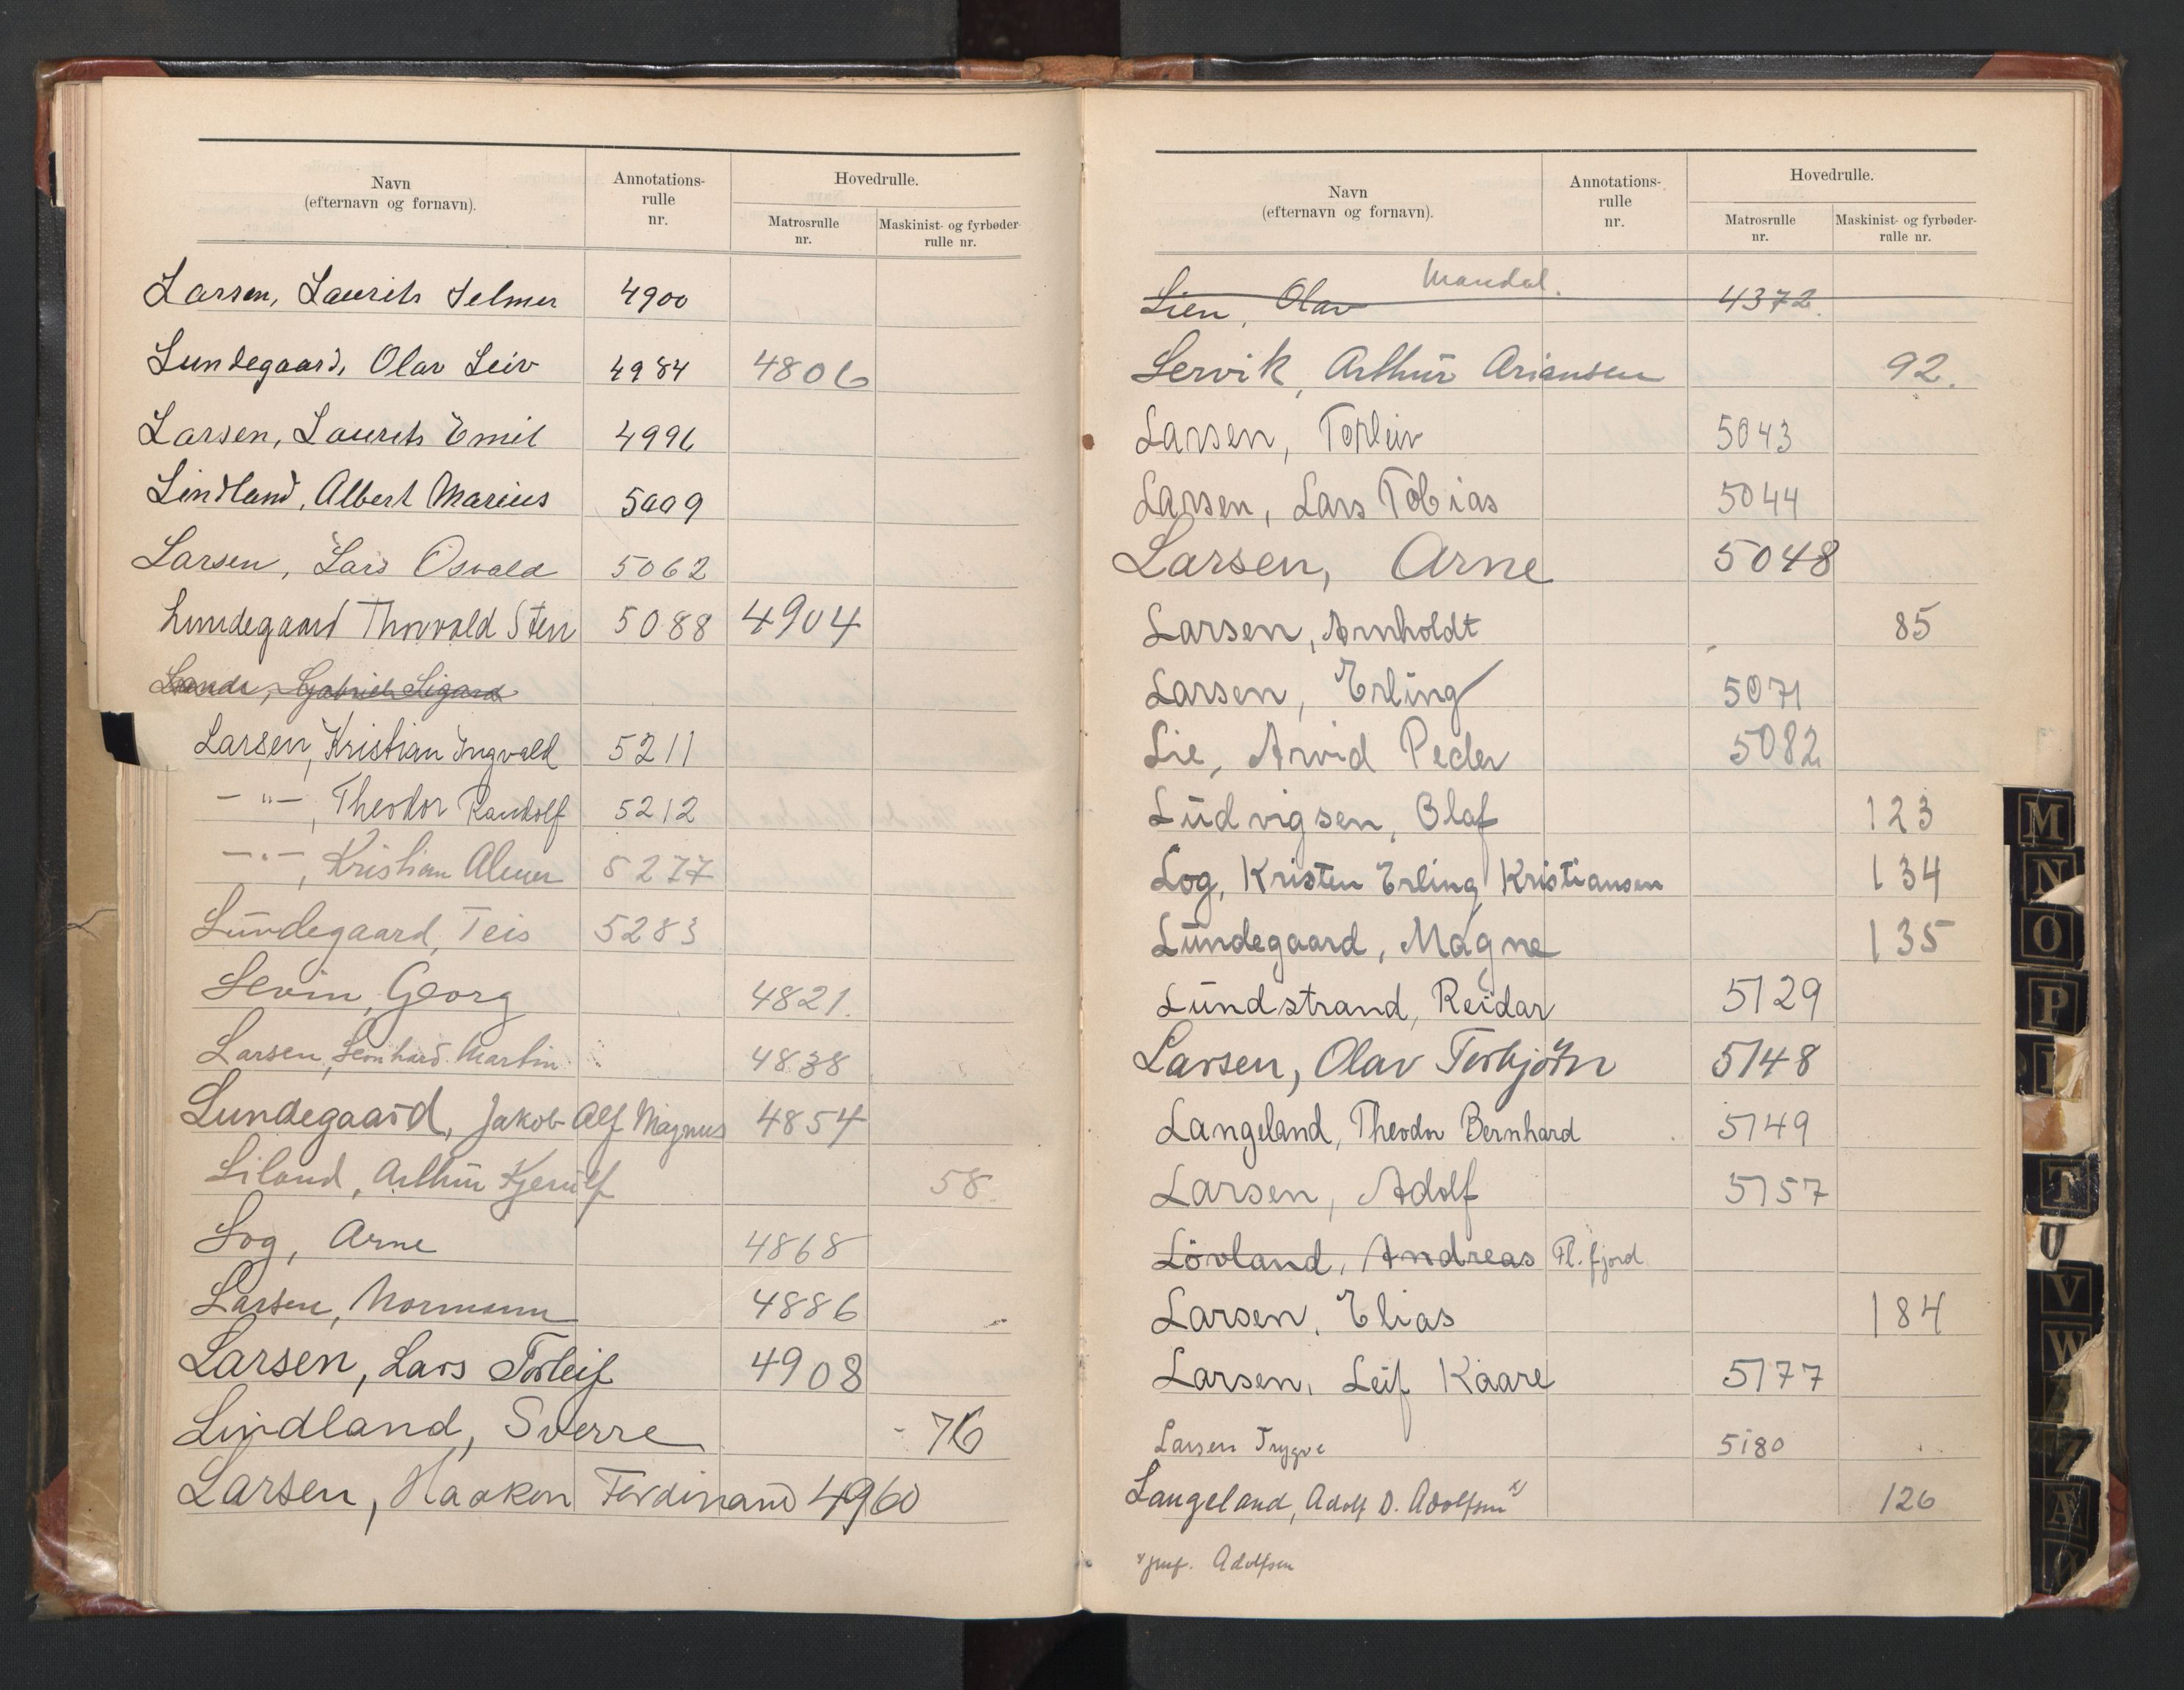 Navn
(efternavn og fornavn).
Annotations-
rulle
nr.
Hovedrulle.
Matrosrulle
nr.
Maskinist- og fyrbøder-
rulle nr.
Larsen, Laurits Selmer 4900
Lundegaard, Olav Leiv 4984 4806
Larsen, Laurits Emil 4996
Lindland, Albert Marius 5009
Larsen, Lars Osvald 5062
Lundegaard Thorvald Sten 5088 4904
Lande, Gabriel Sigard
Larsen, Kristian Ingvald 5211
— " —, Theodor Randolf 5212
— " —, Kristian Almer 5277
Lundegaard, Teis 5283
Levin, Georg 4821.
Larsen, Leonhard Martin 4838
Lundegaard, Jakob Alf Magnus 4854
Liland, Arthur Kjerulf 58.
Log, Arne 4868
Larsen, Normann 4886
Larsen, Lars Torleif 4908
Lindland, Sverre 76
Larsen, Haakon Ferdinand 4960
Navn
(efternavn og fornavn).
Annotations-
rulle
nr.
Hovedrulle.
Matrosrulle
nr.
Maskinist- og fyrbøder-
rulle nr.
Mandal.
Lien, Olav 4372.
Lervik, Arthur Ariansen 92.
Larsen, Torleiv 5043
Larsen, Lars Tobias 5044
Larsen, Arne 5048
Larsen, Arnholdt 85
Larsen, Erling 5071
Lie, Arvid Peder 5082
Ludvigsen, Olaf 123
Log, Kristen Erling Kristiansen 134
Lundegaard, Magne 135
Lundstrand, Reidar 5129
Larsen, Olav Torbjørn 5148
Langeland, Theodor Bernhard 5149
Larsen, Adolf 5157
Lövland, Andreas Fl. fjord
Larsen, Elias 184
Larsen, Leif Kaare 5177
Larsen Trygve 5180
Langeland, Adolf D. Adolfsen x) 126
x) jmf. Adolfsen
M
N
O
P
T
U
V
W
Z
Æ